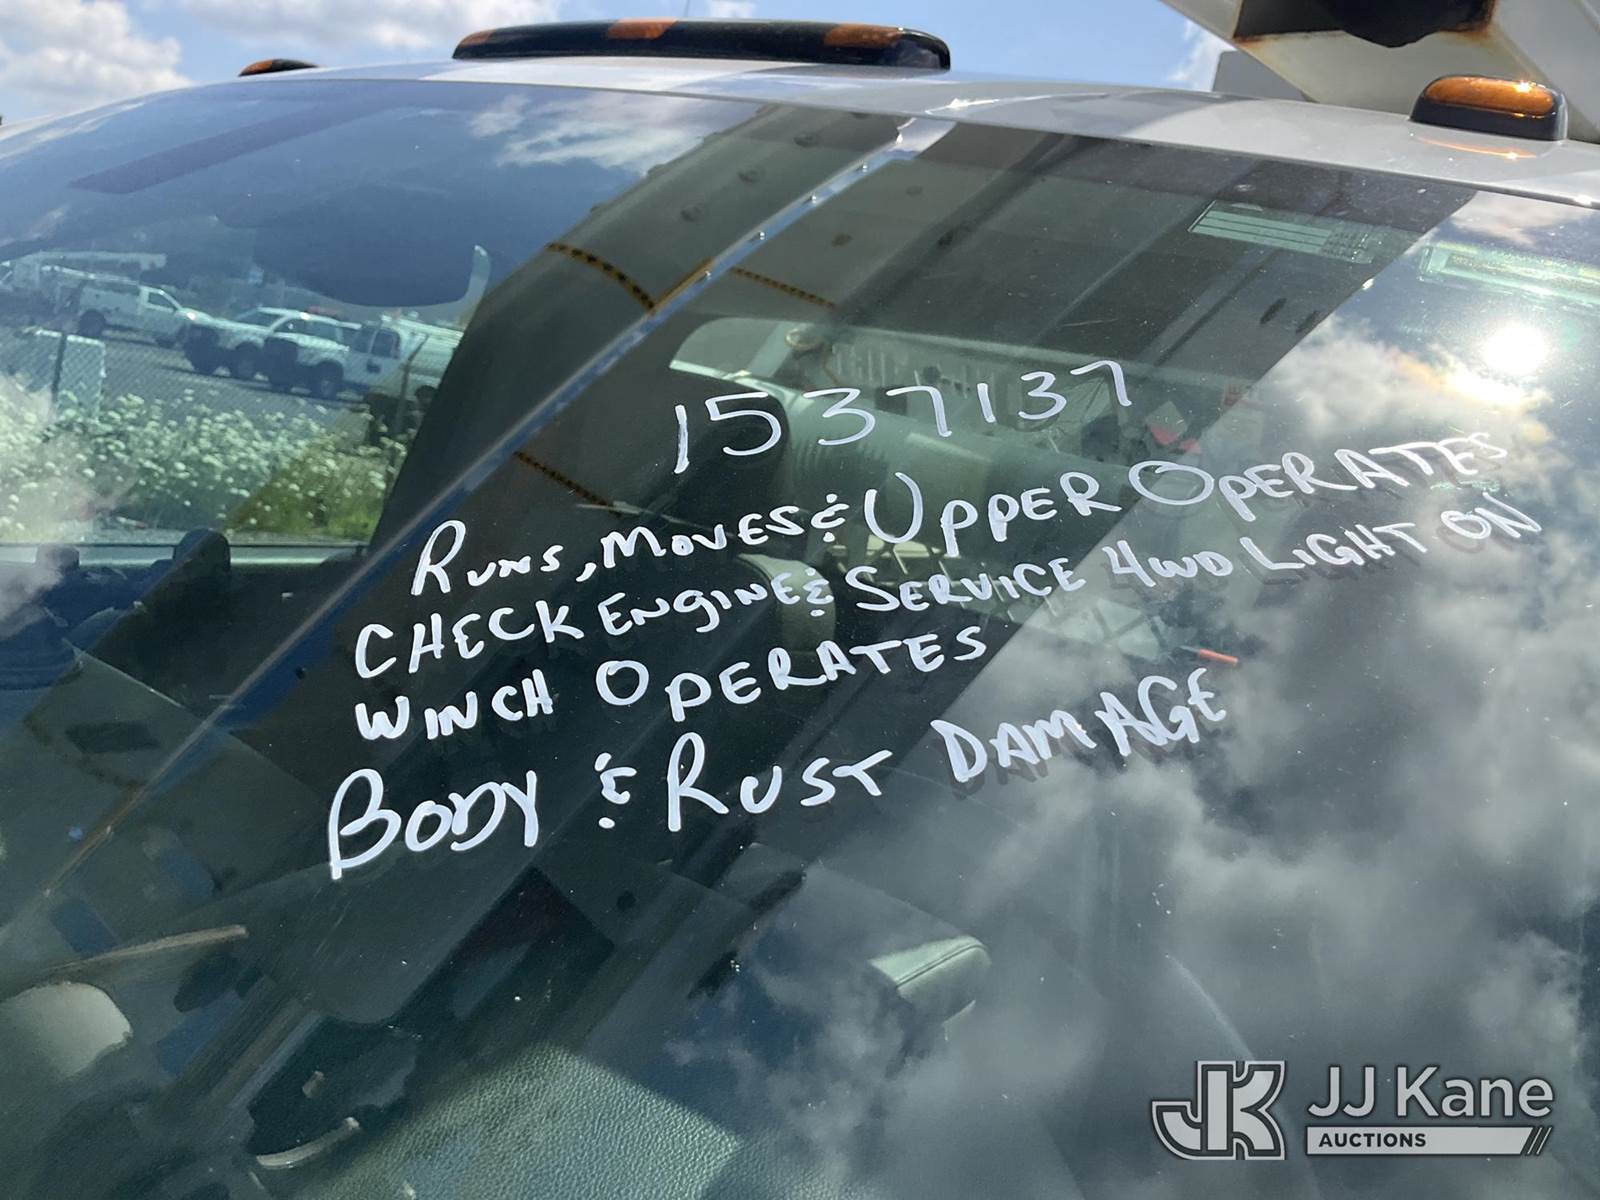 1537137
RUNS, MOVES & UPPER OPERATES
CHECK ENGINE & SERVICE 4WD LIGHT ON
WINCH OPERATES
BODY & RUST DAMAGE
JK JJ Kane
AUCTIONS